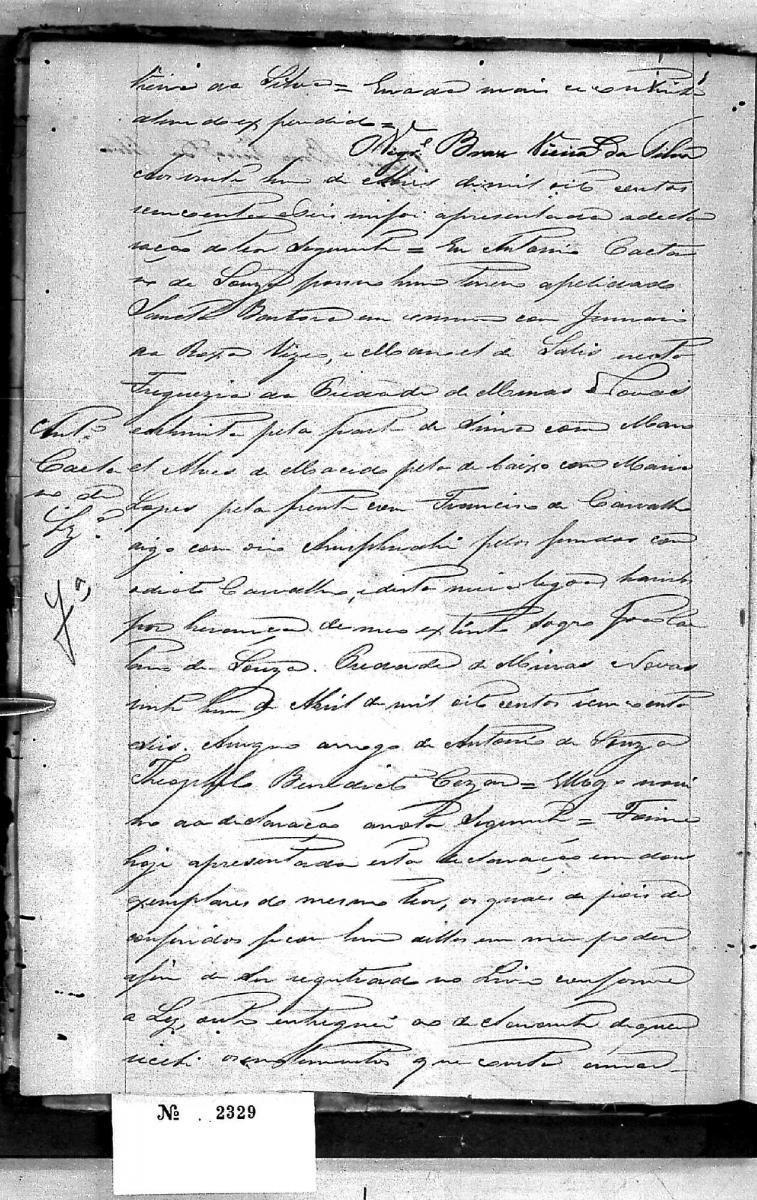 Vieira da Silva = Enada mais se continha
alem do expendido =
Vigr.º Braz Vieira da Silva
Aos vinte hum de Abril de mil oito centos
cincoenta eSeis mefoi apresentada adecla
ração doteor Seguinte = Eu Antonio Caeta
no de Souza possuo hum terreno apelidado
Sancta Barbara em commum com
da Rocha e Manoel de Sales nesta
Freguezia da Piedade de Minas Novas
comfronta pela parte de Sima com Mano
el Alves de Macedo pela de baixo com Maria
Lopes pela frente com Francisco de Carvalho
digo com o rio pelos fundos com
odicto Carvalho, edista meia legoa havido
por herança de meo extinto Sogro
de Souza. Piedade de Minas Novas
vinte hum de Abril de mil oito centos cincoenta
eSeis. Arogo de Antonio de Souza
Theophilo Benedicto Cezar =
no da declaração anota Seguinte = Foime
hoje apresentada esta declaração em dous
exemplares do mesmo teor, os quaes depois de
conferidos ficou hum delles em meu poder
afim de Ser registrado no Livro conforme
a Ley, outro entreguei ao declarante dequem
recebi osemolumentos que consta
Ant.º
Caeta
no de
Sz.ª
Nº 2329